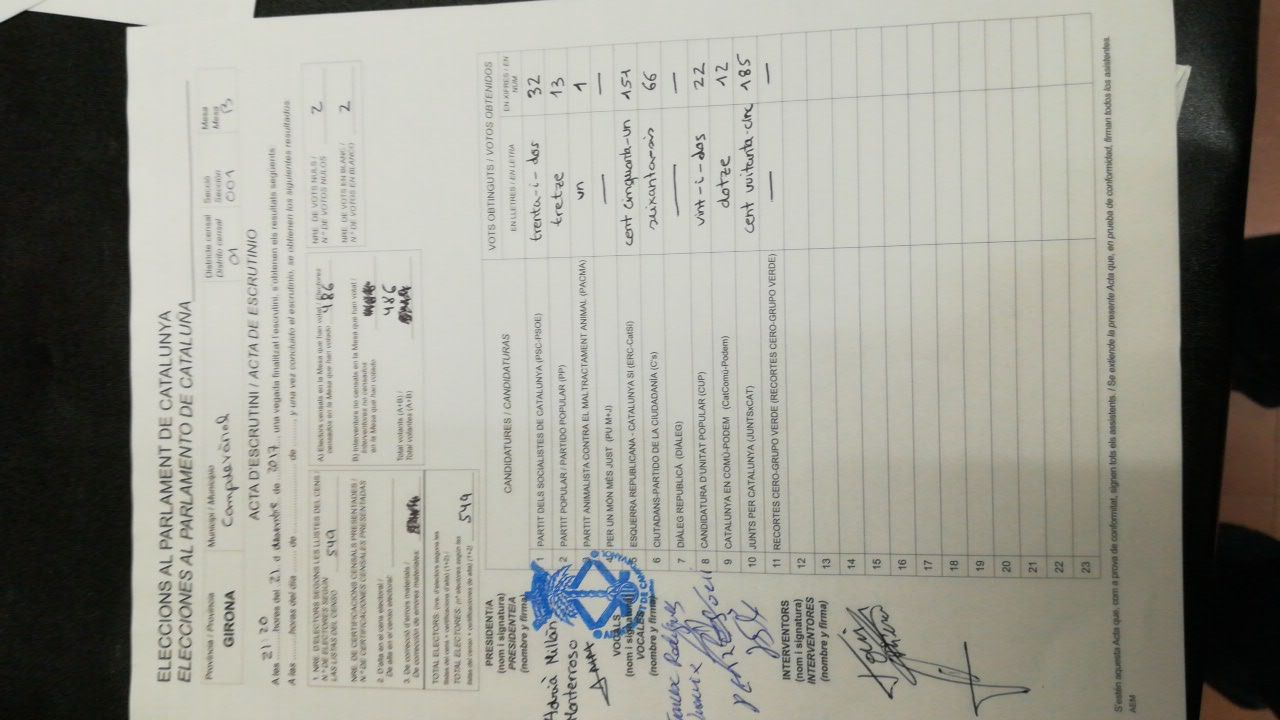 ELECCIONS AL PARLAMENT DE CATALUNYA
ELECCIONES AL PARLAMENTO DE CATALUÑA
Província / Provincia
GIRONA
Municipi / Municipio
Campdevànol
Districte censal
Distrito censal
01
Secció
Sección
001
Mesa
Mesa
B
ACTA D'ESCRUTINI / ACTA DE ESCRUTINIO
A les 21:20 hores del 21 d desembre de 2017, una vegada finalitzat l'escrutini, s'obtenen els resultats següents
A las hores del día de de y una vez concluido el escrutinio, se obtienen los siguientes resultados
1. NRE. D'ELECTORS SEGONS LES LLISTES DEL CENS /
N.º DE ELECTORES SEGÚN
LAS LISTAS DEL CENSO 549
NRE. DE CERTIFICACIONS CENSALS PRESENTADES /
N.º DE CERTIFICACIONES CENSALES PRESENTADAS
2. D'alta en el cens electoral /
De alta en el censo electoral:
3. De correcció d'errors materials /
De corrección de errores materiales:
TOTAL ELECTORS: (nre. d'electors segons les
llistes del cens + certificacions d'alta) (1+2) /
TOTAL ELECTORES: (nº electores según las
listas del censo + certificaciones de alta) (1+2) 549
A) Electors censats en la Mesa que han votat / Electores
censados en la Mesa que han votado 486
B) Interventors no censats en la Mesa que han votat /
Interventores no censados
en la Mesa que han votado
Total votants (A+B) / 486
Total votantes (A+B)
NRE. DE VOTS NULS /
N.º DE VOTOS NULOS 2
NRE. DE VOTS EN BLANC /
N.º DE VOTOS EN BLANCO 2
CANDIDATURES / CANDIDATURAS
VOTS OBTINGUTS / VOTOS OBTENIDOS
EN LLETRES / EN LETRA
EN XIFRES / EN NÚM.
1 PARTIT DELS SOCIALISTES DE CATALUNYA (PSC-PSOE) trenta-i-dos 32
2 PARTIT POPULAR / PARTIDO POPULAR (PP) tretze 13
3 PARTIT ANIMALISTA CONTRA EL MALTRACTAMENT ANIMAL (PACMA) un 1
4 PER UN MÓN MÉS JUST (PU M+J) — —
5 ESQUERRA REPUBLICANA - CATALUNYA SÍ (ERC-CatSí) cent cinquanta-un 151
6 CIUTADANS-PARTIDO DE LA CIUDADANÍA (C's) seixanta-sis 66
7 DIÀLEG REPUBLICÀ (DIÀLEG) — —
8 CANDIDATURA D'UNITAT POPULAR (CUP) vint-i-dos 22
9 CATALUNYA EN COMÚ-PODEM (CatComú-Podem) dotze 12
10 JUNTS PER CATALUNYA (JUNTSxCAT) cent vuitanta-cinc 185
11 RECORTES CERO-GRUPO VERDE (RECORTES CERO-GRUPO VERDE) — —
12
13
14
15
16
17
18
19
20
21
22
23
PRESIDENT/A
(nom i signatura)
PRESIDENTE/A
(nombre y firma)
Millán
Monteroso
VOCALS
(nom i signatura)
VOCALES
(nombre y firma)
INTERVENTORS
(nom i signatura)
INTERVENTORES
(nombre y firma)
S'estén aquesta Acta que, com a prova de conformitat, signen tots els assistents. / Se extiende la presente Acta que, en prueba de conformidad, firman todos los asistentes.
AEM